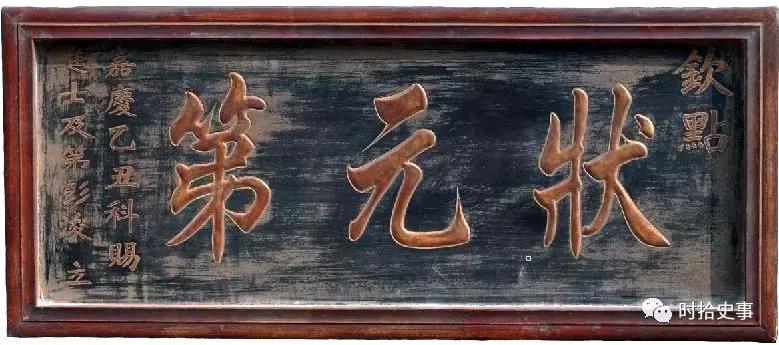 欽點
狀元第
嘉慶乙丑科賜
進士及第彭浚 立
时拾史事